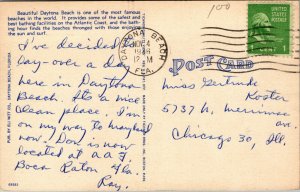 Beautiful Daytona Beach is one of the most famous
beaches in the world. It provides some of the safest and
best bathing facilities on the Atlantic Coast, and the bath-
ing hour finds the beaches thronged with those enjoying the
sun and surf.
I've decided to
lay-over a day
here in Daytona
Beach. It's a nice
clean place. I'm
on my way to
now. Don is now
located at AAF
Boca Raton Fla.
Ray.
DAYTONA BEACH
NOV 4
12 M
FLA.
UNITED STATES
POSTAGE
1 CENT 1
POST CARD
Miss Gertrude
Koster
5737 N. Merrimac
ave
Chicago 30, Ill.